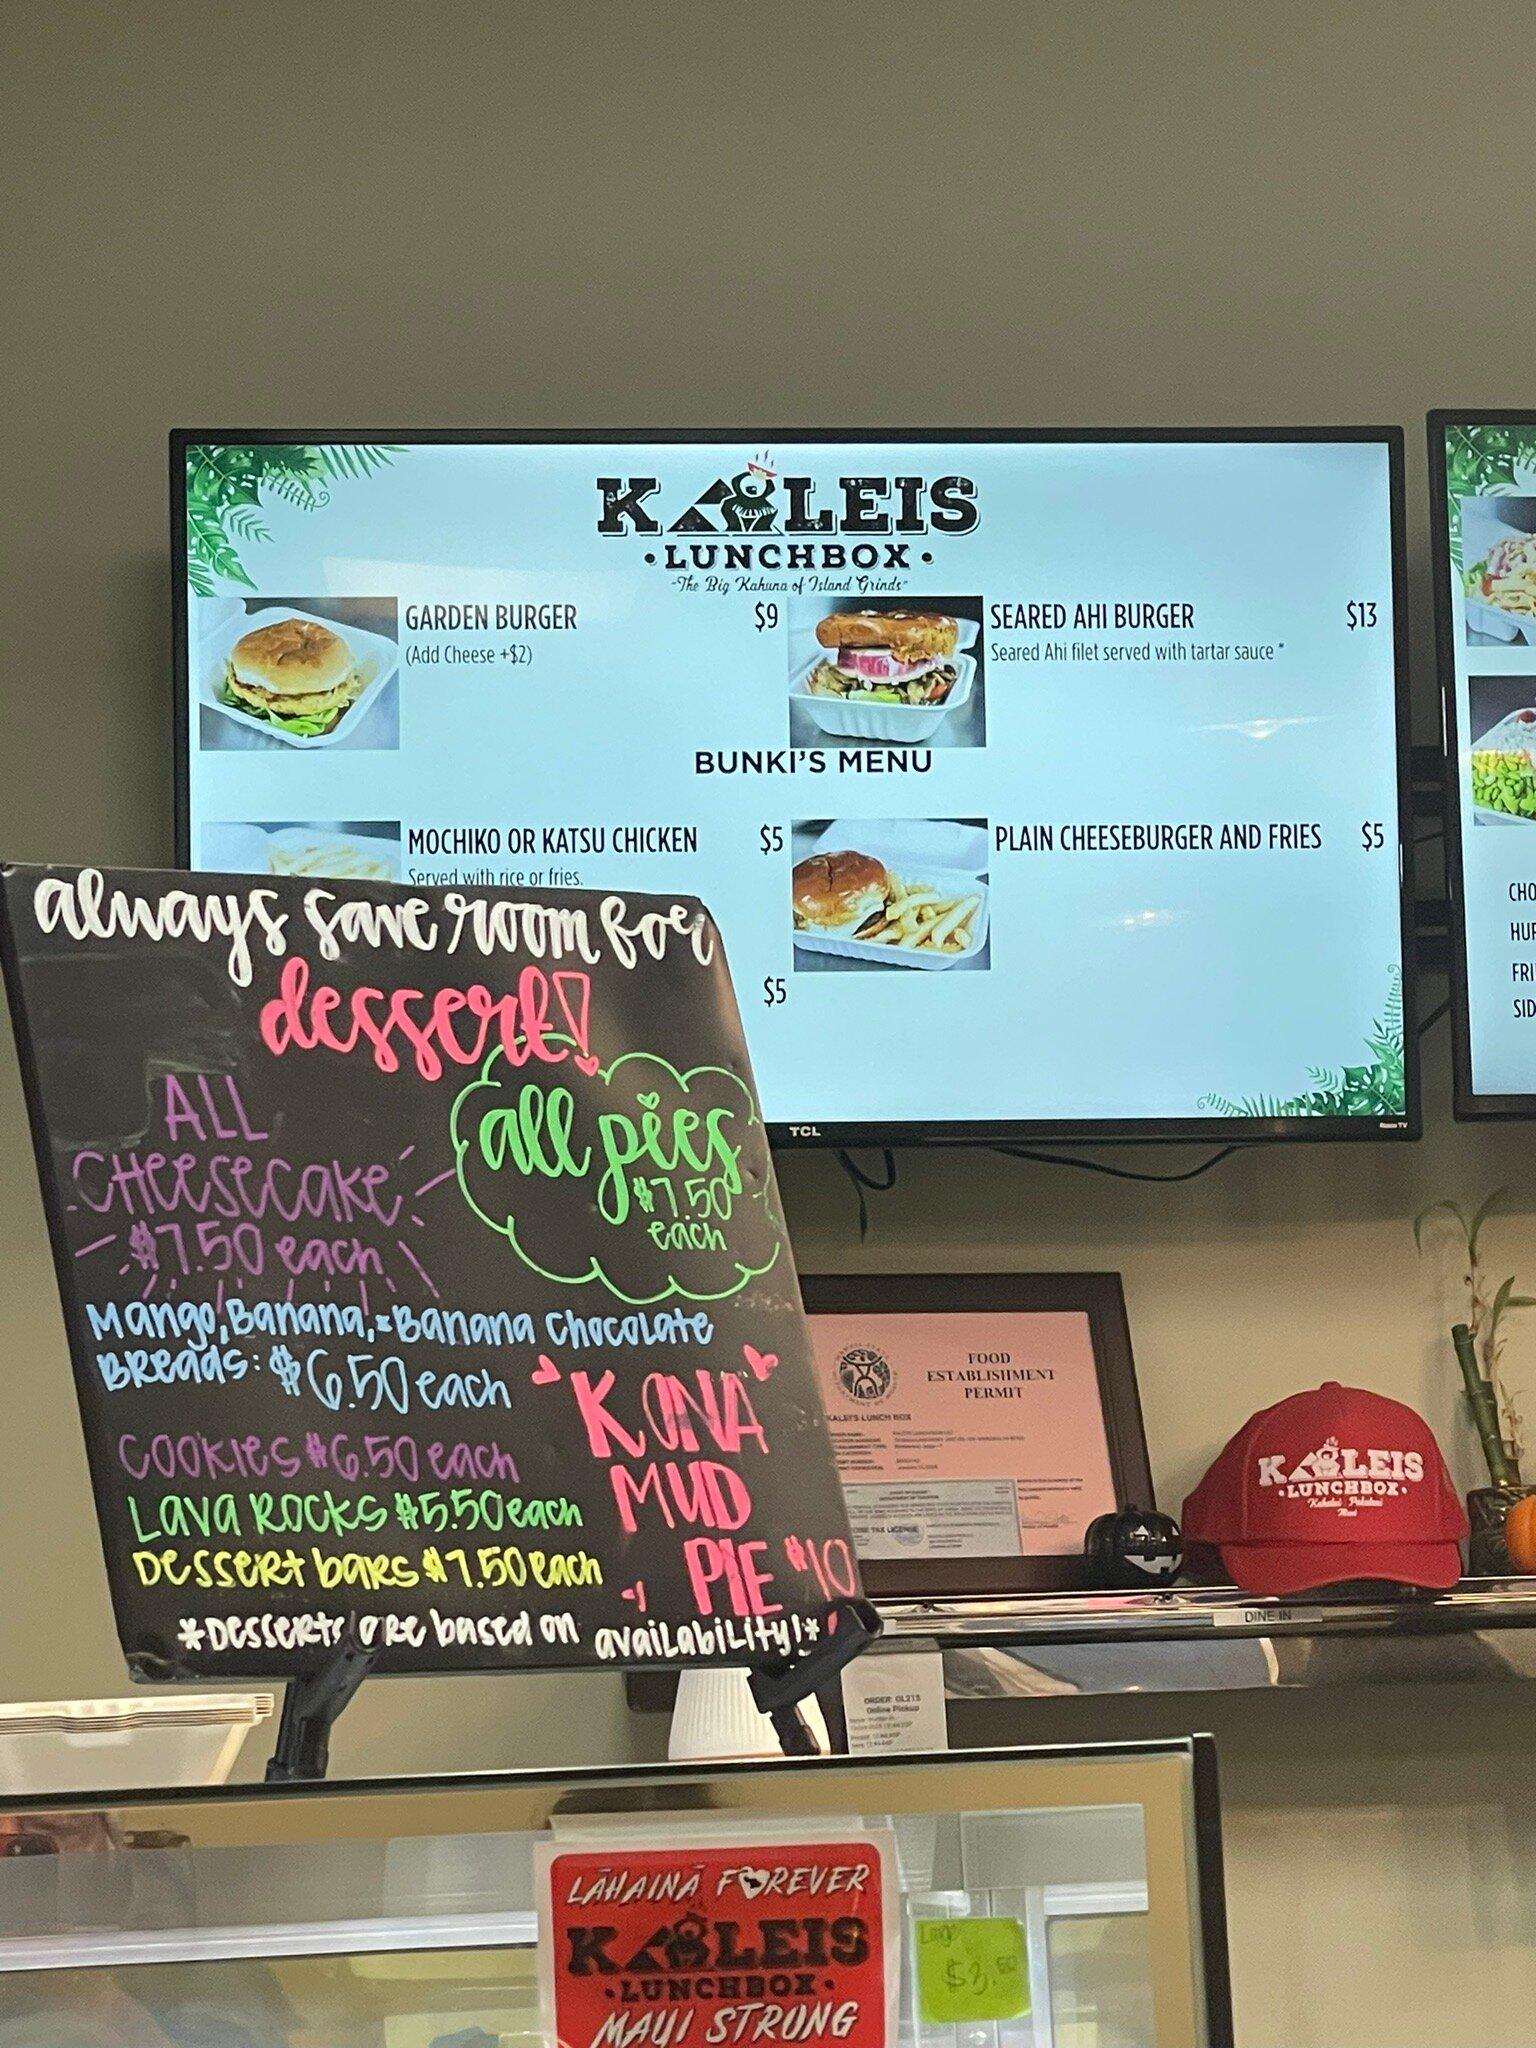 KALEIS
• LUNCHBOX •
"The Big Kahuna of Island Grinds"
GARDEN BURGER $9
(Add Cheese +$2)
SEARED AHI BURGER $13
Seared Ahi filet served with tartar sauce *
BUNKI'S MENU
MOCHIKO OR KATSU CHICKEN $5
Served with rice or fries.
PLAIN CHEESEBURGER AND FRIES $5
$5
TCL
Roku TV
CHO
HUR
FRI
SID
always save room for
dessert!
ALL
CHEESECAKE
$7.50 each
all pies
$7.50
each
Mango, Banana, & Banana Chocolate
Breads: $6.50 each
Cookies $6.50 each
Lava Rocks $5.50 each
Dessert bars $7.50 each
"KONA"
MUD
PIE $10
*Desserts are based on availability!*
FOOD
ESTABLISHMENT
PERMIT
KALEI'S LUNCH BOX
TAX LICENSE
KALEIS
• LUNCHBOX •
Maui
DINE IN
ORDER: OL215
Online Pickup
LĀHAINĀ FOREVER
KALEIS
• LUNCHBOX •
MAUI STRONG
Large
$3.50